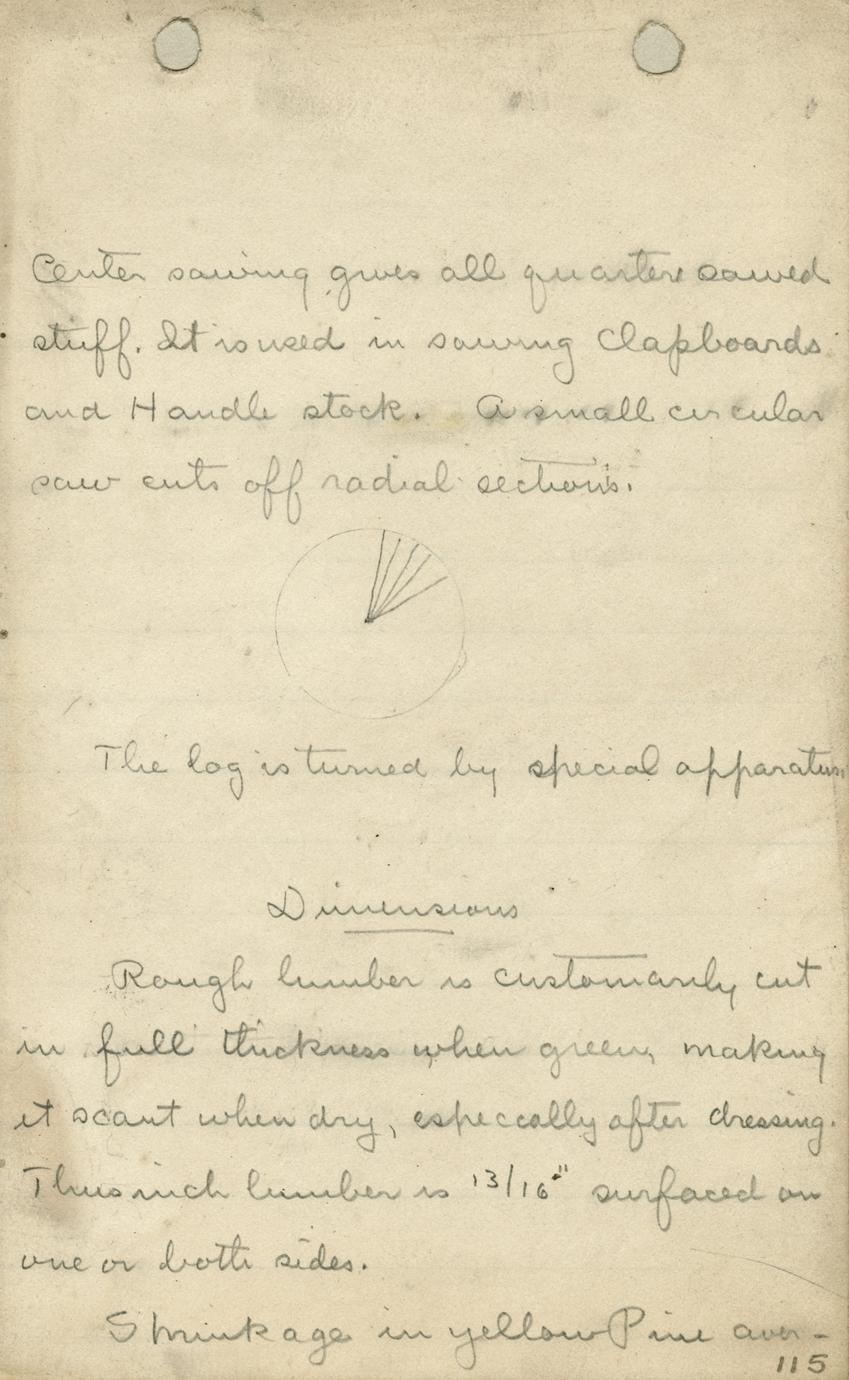 Center sawing gives all quarter sawed
stuff. It is used in sawing Clapboards
and Handle stock. A small circular
saw cuts off radial sections.
The log is turned by special apparatus.
Dimensions
Rough lumber is customarily cut
in full thickness when green, making
it scant when dry, especially after dressing.
Thus inch lumber is 13/16" surfaced on
one or both sides.
Shrinkage in yellow Pine aver-
115